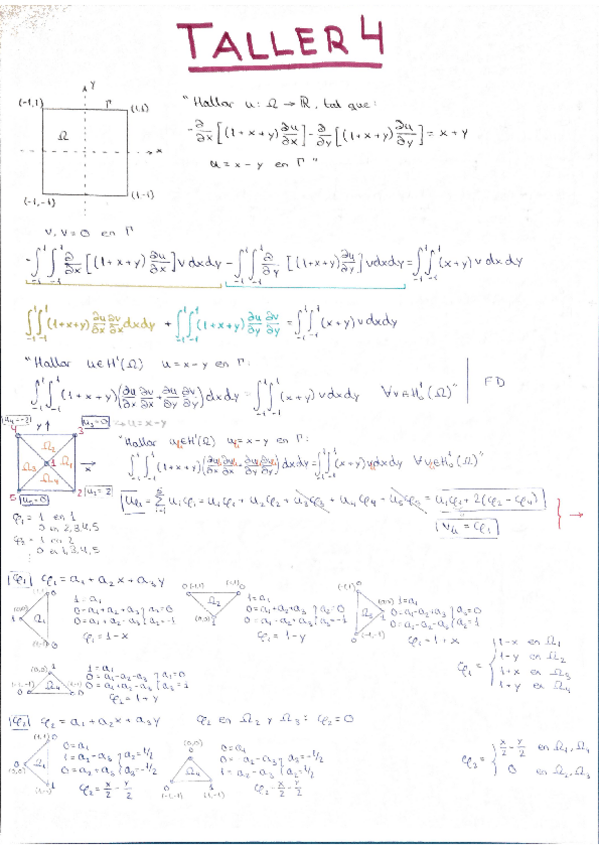 TALLER 4
y
(-1,1) Γ (1,1)
Ω
x
(-1,-1) (1,-1)
"Hallar u: Ω → ℝ, tal que:
-∂/∂x[(1+x+y)∂u/∂x]-∂/∂y[(1+x+y)∂u/∂y]=x+y
u=x-y en Γ"
v, v=0 en Γ
-∫₋₁¹∫₋₁¹ ∂/∂x[(1+x+y)∂u/∂x]v dxdy -∫₋₁¹∫₋₁¹ ∂/∂y[(1+x+y)∂u/∂y]vdxdy=∫₋₁¹∫₋₁¹(x+y)v dxdy
∫₋₁¹∫₋₁¹(1+x+y)∂u/∂x ∂v/∂x dxdy +∫₋₁¹∫₋₁¹(1+x+y)∂u/∂y ∂v/∂y =∫₋₁¹∫₋₁¹(x+y)vdxdy
"Hallar u∈H¹(Ω) u=x-y en Γ:
∫₋₁¹∫₋₁¹(1+x+y)(∂u/∂x ∂v/∂x+∂u/∂y ∂v/∂y)dxdy=∫₋₁¹∫₋₁¹(x+y)vdxdy ∀v∈H₀¹(Ω)" FD
u₄=-2 y u₃=0 → u=x-y
4 3
Ω₂
Ω₃ 1 Ω₁ x
Ω₄
5 u₅=0 2 u₁=2
"Hallar uₕ∈H¹(Ω) uₕ=x-y en Γ:
∫₋₁¹∫₋₁¹(1+x+y)(∂uₕ/∂x ∂vₕ/∂x+∂uₕ/∂y ∂vₕ/∂y)dxdy=∫₋₁¹∫₋₁¹(x+y)vₕdxdy ∀vₕ∈H₀¹(Ω)"
uₕ=Σuᵢφᵢ=u₁φ₁+u₂φ₂+u₃φ₃+u₄φ₄-u₅φ₅=u₁φ₁+2(φ₂-φ₄)
vₕ=φ₁ →
φ₁= 1 en 1
0 en 2,3,4,5
φ₂= 1 en 2
0 en 1,3,4,5
φ₁ φ₁=a₁+a₂x+a₃y
(0,0) Ω₁
1=a₁
0=a₁+a₂+a₃ a₂=0
φ₁=1-x
(-1,1) (1,1)
Ω₂
(0,0)
1=a₁
0=a₁+a₂+a₃ a₂=0
0=a₁-a₂+a₃ a₃=-1
φ₁=1-y
(-1,1)
Ω₃ (0,0)
(-1,-1)
1=a₁
0=a₁-a₂+a₃ a₃=0
0=a₁-a₂-a₃ a₂=1
φ₁=1+x
(0,0)
Ω₄
(-1,-1) (1,-1)
1=a₁
0=a₁-a₂-a₃ a₂=0
0=a₁+a₂-a₃ a₃=1
φ₁=1+y
φ₁= 1-x en Ω₁
1-y en Ω₂
1+x en Ω₃
1+y en Ω₄
φ₂ φ₂=a₁+a₂x+a₃y φ₂ en Ω₂ y Ω₃: φ₂=0
(1,1)
(0,0) Ω₁
(1,-1)
0=a₁
1=a₂-a₃ a₂=1/2
0=a₂+a₃ a₃=-1/2
φ₂=x/2-y/2
(0,0)
Ω₄
(-1,-1) (1,-1)
0=a₁
0=-a₂-a₃ a₃=-1/2
1=a₂-a₃ a₂=1/2
φ₂=x/2-y/2
φ₂= x/2-y/2 en Ω₁,Ω₄
0 en Ω₂,Ω₃